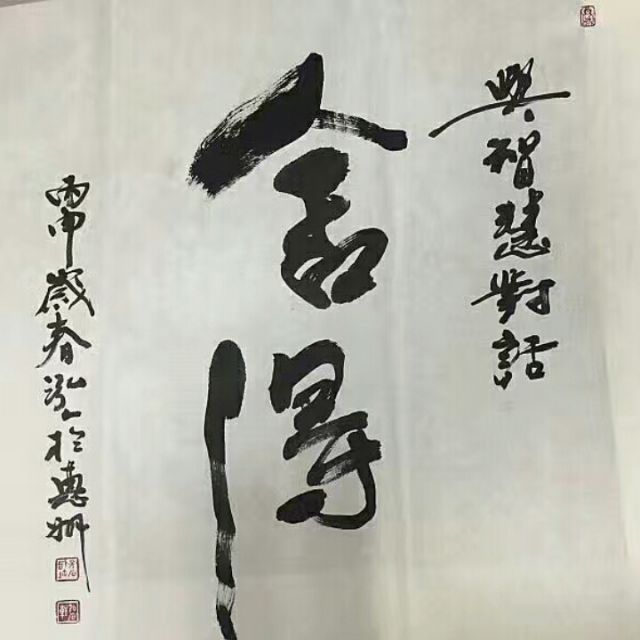 與智慧對話
舍得
丙申歲春泓於惠州